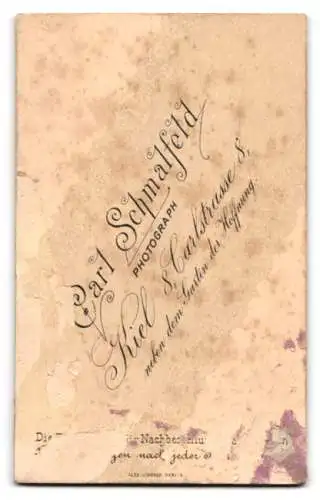 Carl Schmalfeld
PHOTOGRAPH
Kiel 8, Carlstrasse 8,
neben dem Garten der Hoffnung.
Die Nachbes
gen nach jeder